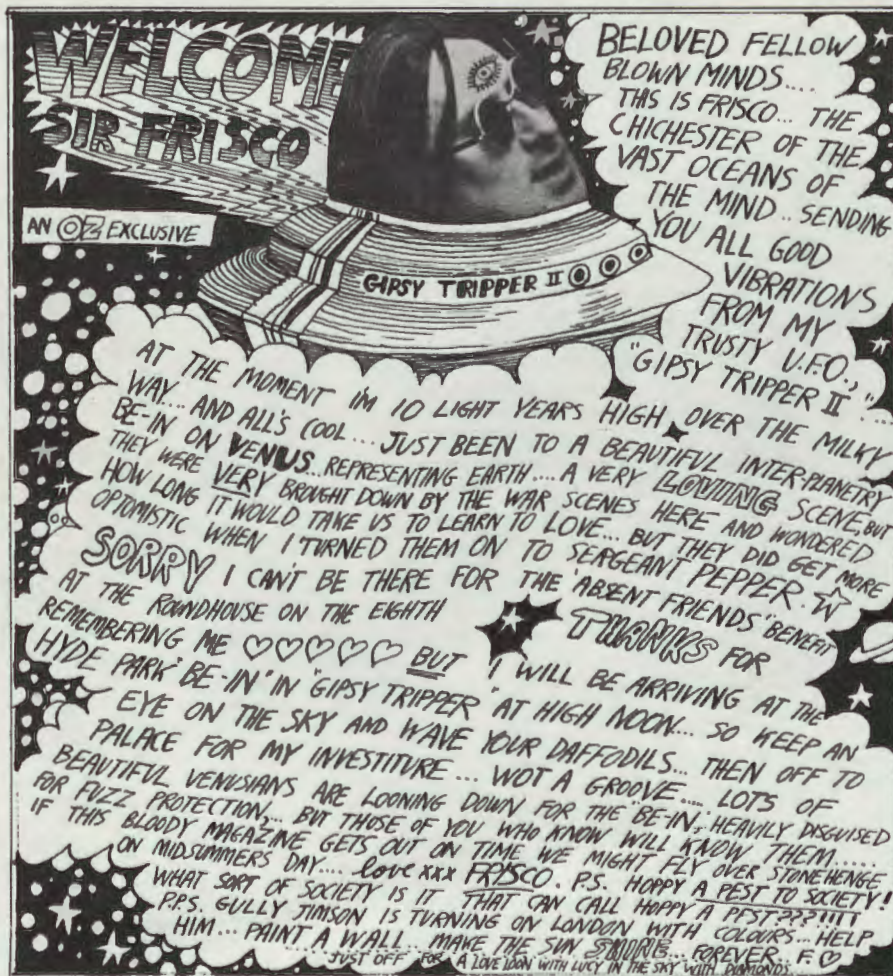 WELCOME
SIR FRISCO
AN OZ EXCLUSIVE
GIPSY TRIPPER II
BELOVED FELLOW
BLOWN MINDS....
THIS IS FRISCO... THE
CHICHESTER OF THE
VAST OCEANS OF
THE MIND.. SENDING
YOU ALL GOOD
VIBRATIONS
FROM MY
TRUSTY U.F.O.,
"GIPSY TRIPPER II"....
AT THE MOMENT I'M 10 LIGHT YEARS HIGH OVER THE MILKY
WAY... AND ALL'S COOL... JUST BEEN TO A BEAUTIFUL INTER-PLANETRY
BE-IN ON VENUS.. REPRESENTING EARTH.... A VERY LOVING SCENE, BUT
THEY WERE VERY BROUGHT DOWN BY THE WAR SCENES HERE AND WONDERED
HOW LONG IT WOULD TAKE US TO LEARN TO LOVE... BUT THEY DID GET MORE
OPTOMISTIC WHEN I TURNED THEM ON TO SERGEANT PEPPER.
SORRY I CAN'T BE THERE FOR THE ABSENT FRIENDS' BENEFIT
AT THE ROUNDHOUSE ON THE EIGHTH THANKS FOR
REMEMBERING ME ♡♡♡♡♡ BUT I WILL BE ARRIVING AT THE
HYDE PARK 'BE-IN' IN 'GIPSY TRIPPER' AT HIGH NOON... SO KEEP AN
EYE ON THE SKY AND WAVE YOUR DAFFODILS... THEN OFF TO
PALACE FOR MY INVESTITURE... WOT A GROOVE.... LOTS OF
BEAUTIFUL VENUSIANS ARE LOONING DOWN FOR THE 'BE-IN', HEAVILY DISGUISED
FOR FUZZ PROTECTION,... BUT THOSE OF YOU WHO KNOW WILL KNOW THEM.....
IF THIS BLOODY MAGAZINE GETS OUT ON TIME WE MIGHT FLY OVER STONEHENGE
ON MIDSUMMERS DAY.... love xxx FRISCO. P.S. HOPPY A PEST TO SOCIETY!
WHAT SORT OF SOCIETY IS IT THAT CAN CALL HOPPY A PEST???!!!!
P.P.S. GULLY JIMSON IS TURNING ON LONDON WITH COLOURS... HELP
HIM... PAINT A WALL... MAKE THE SUN SHINE... FOREVER. F. ♡
...JUST OFF FOR A LOVE LOON WITH LUCY IN THE SKY WITH DIAMONDS